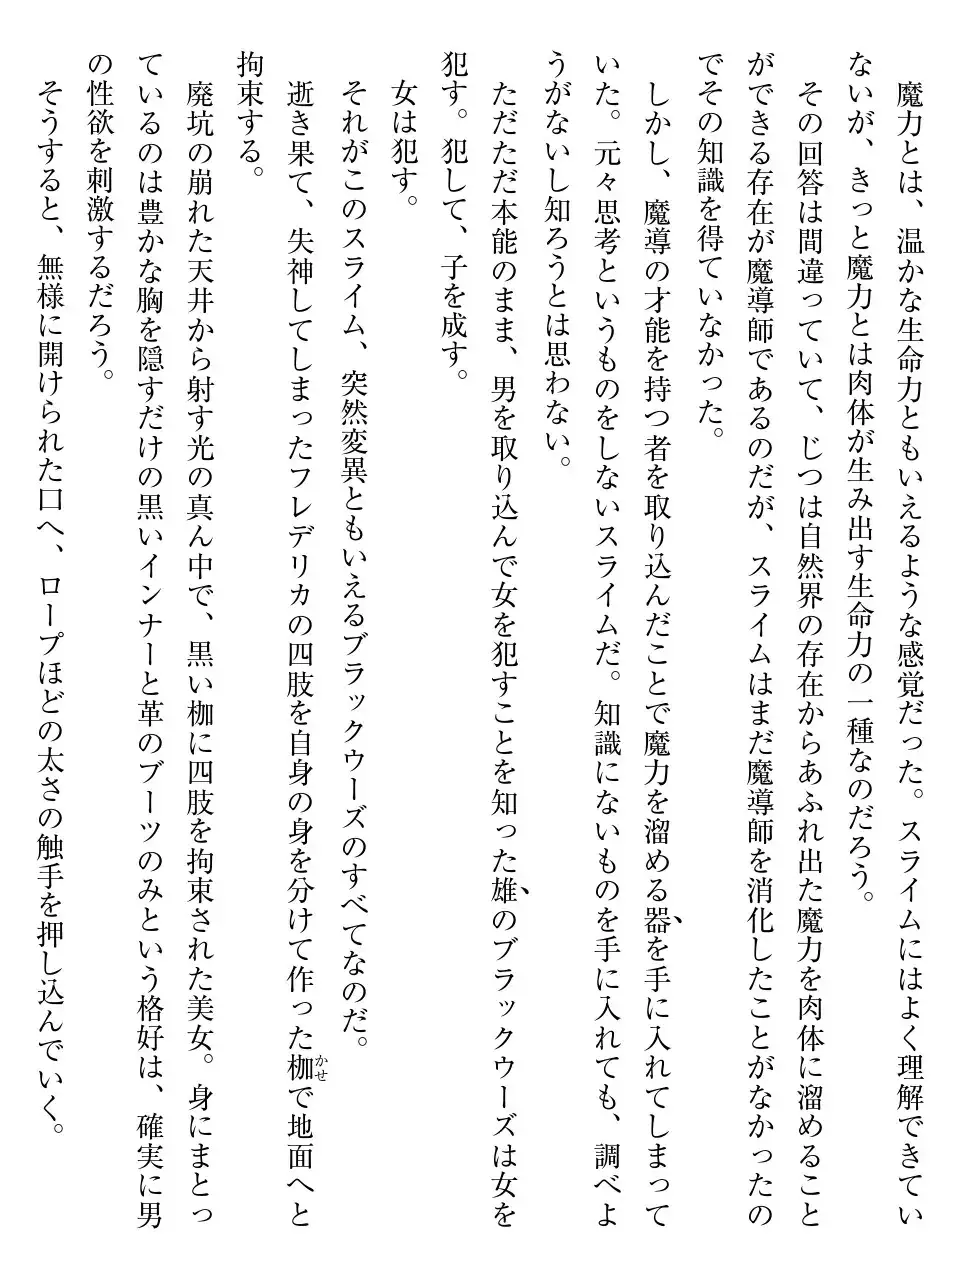 魔力とは、温かな生命力ともいえるような感覚だった。スライムにはよく理解できてい
ないが、きっと魔力とは肉体が生み出す生命力の一種なのだろう。
　その回答は間違っていて、じつは自然界の存在からあふれ出た魔力を肉体に溜めること
ができる存在が魔導師であるのだが、スライムはまだ魔導師を消化したことがなかったの
でその知識を得ていなかった。
　しかし、魔導の才能を持つ者を取り込んだことで魔力を溜める器を手に入れてしまって
いた。元々思考というものをしないスライムだ。知識にないものを手に入れても、調べよ
うがないし知ろうとは思わない。
　ただただ本能のまま、男を取り込んで女を犯すことを知った雄のブラックウーズは女を
犯す。犯して、子を成す。
　女は犯す。
　それがこのスライム、突然変異ともいえるブラックウーズのすべてなのだ。
　逝き果て、失神してしまったフレデリカの四肢を自身の身を分けて作った枷かせで地面へと
拘束する。
　廃坑の崩れた天井から射す光の真ん中で、黒い枷に四肢を拘束された美女。身にまとっ
ているのは豊かな胸を隠すだけの黒いインナーと革のブーツのみという格好は、確実に男
の性欲を刺激するだろう。
　そうすると、無様に開けられた口へ、ロープほどの太さの触手を押し込んでいく。